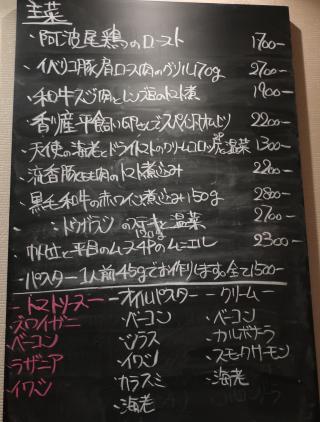 主菜
・阿波尾鶏のロースト 1700-
・イベリコ豚肩ロース肉のグリル170g 2700-
・和牛スジ肉とレンズ豆のトマト煮 1900-
・香川産平飼い スペイン オムレツ 2200-
・天使の海老とドライトマトのクリームコロッケと温菜 1300-
豚もも肉のトマト煮込み 2200-
・黒毛和牛の赤ワイン煮込み150g 2800-
・ と温菜 2700-
・帆立と平目のムース4Pのムニエル 2300-
・パスター1人前45gでお作りします。全て1500-
トマトソースー
・ズワイガニ
・ベーコン
・ラザニア
・イワシ
ーオイルパスター
・ベーコン
・シラス
・イワシ
・カラスミ
・海老
ークリーム
・ベーコン
・カルボナーラ
・スモークサーモン
・海老